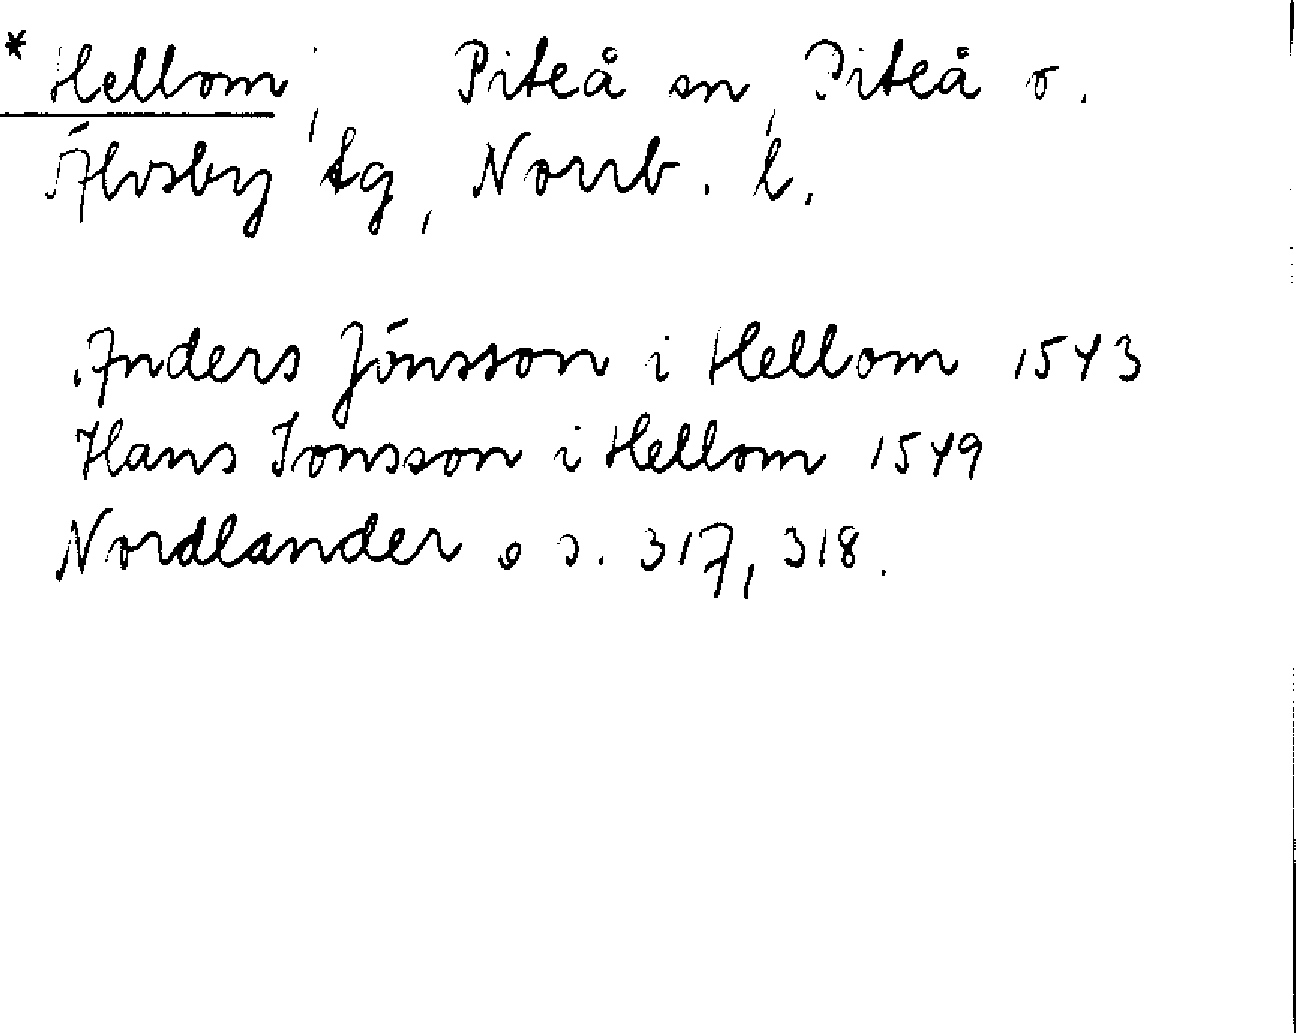 *Hellom, Piteå sn, Piteå o.
Älvsby tg, Norrb. l.
Anders Jönsson i Hellom 1543
Hans Jonsson i Hellom 1549
Nordlander o s. 317, 318.